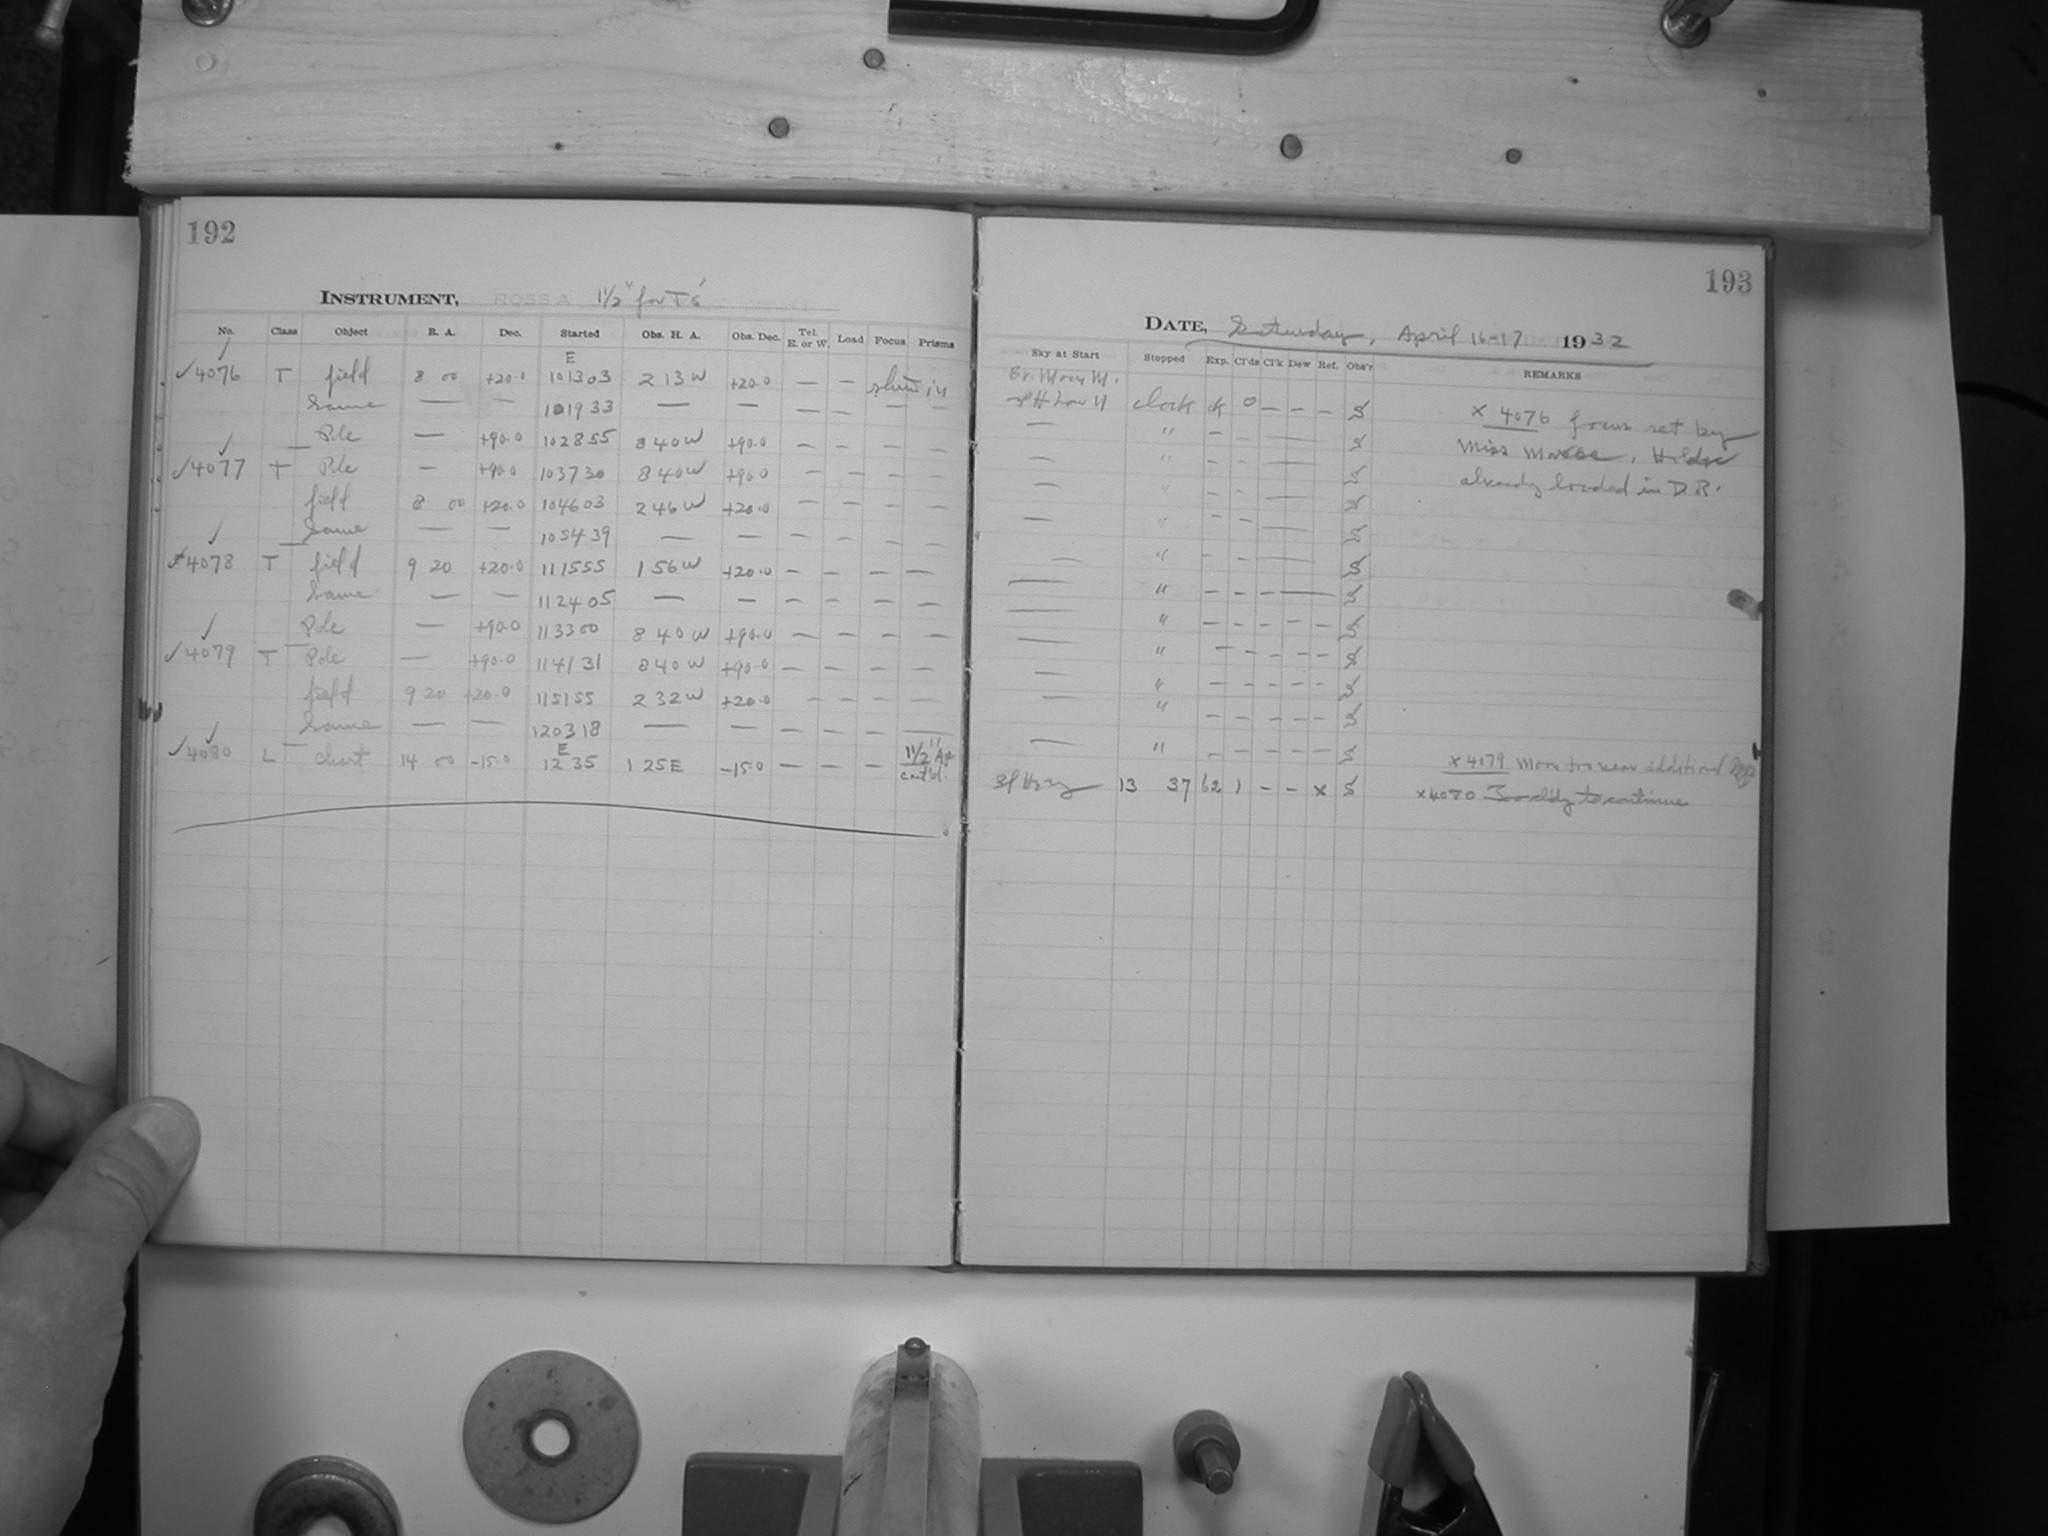 192
INSTRUMENT, ROSS A 1 1/2" for T's
No. Class Object R. A. Dec. Started Obs. H. A. Obs. Dec. Tel. E. or W. Load Focus Prisms
E
✓4076 T field 8 00 +20.0 101303 2 13 W +20.0 — —
Same — — 101933 — — — — — —
Pole — +90.0 102855 8 40 W +90.0 — — — —
✓4077 T Pole — +90.0 103730 8 40 W +90.0 — — — —
field 8 00 +20.0 104603 2 46 W +20.0 — — — —
Same — — 105439 — — — — — —
4078 T field 9 20 +20.0 111555 1 56 W +20.0 — — — —
Same — — 112405 — — — — — —
Pole — +90.0 113300 8 40 W +90.0 — — — —
✓4079 T Pole — +90.0 114131 8 40 W +90.0 — — — —
field 9 20 +20.0 115155 2 32 W +20.0 — — —
Same — — 120318 — — — — — —
E
✓4080 L chart 14 00 -15.0 12 35 1 25 E -15.0 — — — 1 1/2" Ap
cont'd.
193
DATE, Saturday, April 16-17 1932
Sky at Start Stopped Exp. Cl'ds Cl'k Dew Ref. Obs'r REMARKS
Br. Moon M.
clock ck 0 — — — S
— " — — — S
— " — — — S
— " — — — S
— " — — — S
— " — — — S
— " — — — — S
— " — — — — — S
— " — — — — — S
— " — — — — — S
— " — — — — — S
— " — — — — — S
13 37 62 1 — — x S
x 4076 focus set by
Miss
already loaded in D.R.
x 4079 Moon too near additional
x 4080 Too cldy to continue